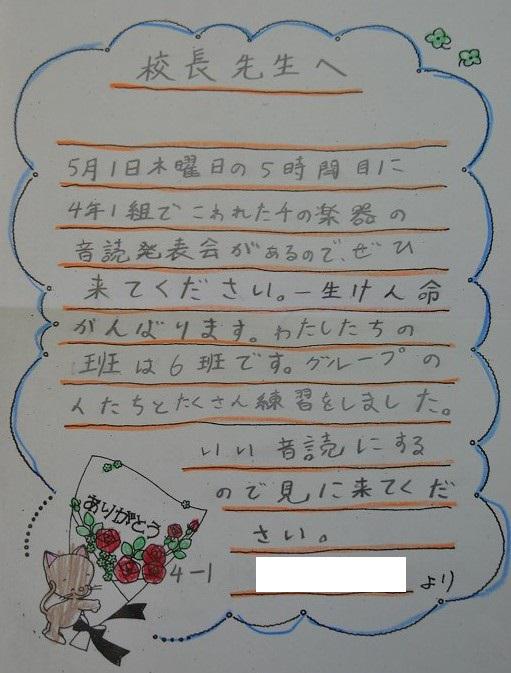 校長先生へ
5月1日木曜日の5時間目に
4年1組でこわれた千の楽器の
音読発表会があるので、ぜひ
来てください。一生けん命
がんばります。わたしたちの
班は6班です。グループの
人たちとたくさん練習をしました。
いい音読にする
ので見に来てくだ
さい。
ありがとう
4-1
より